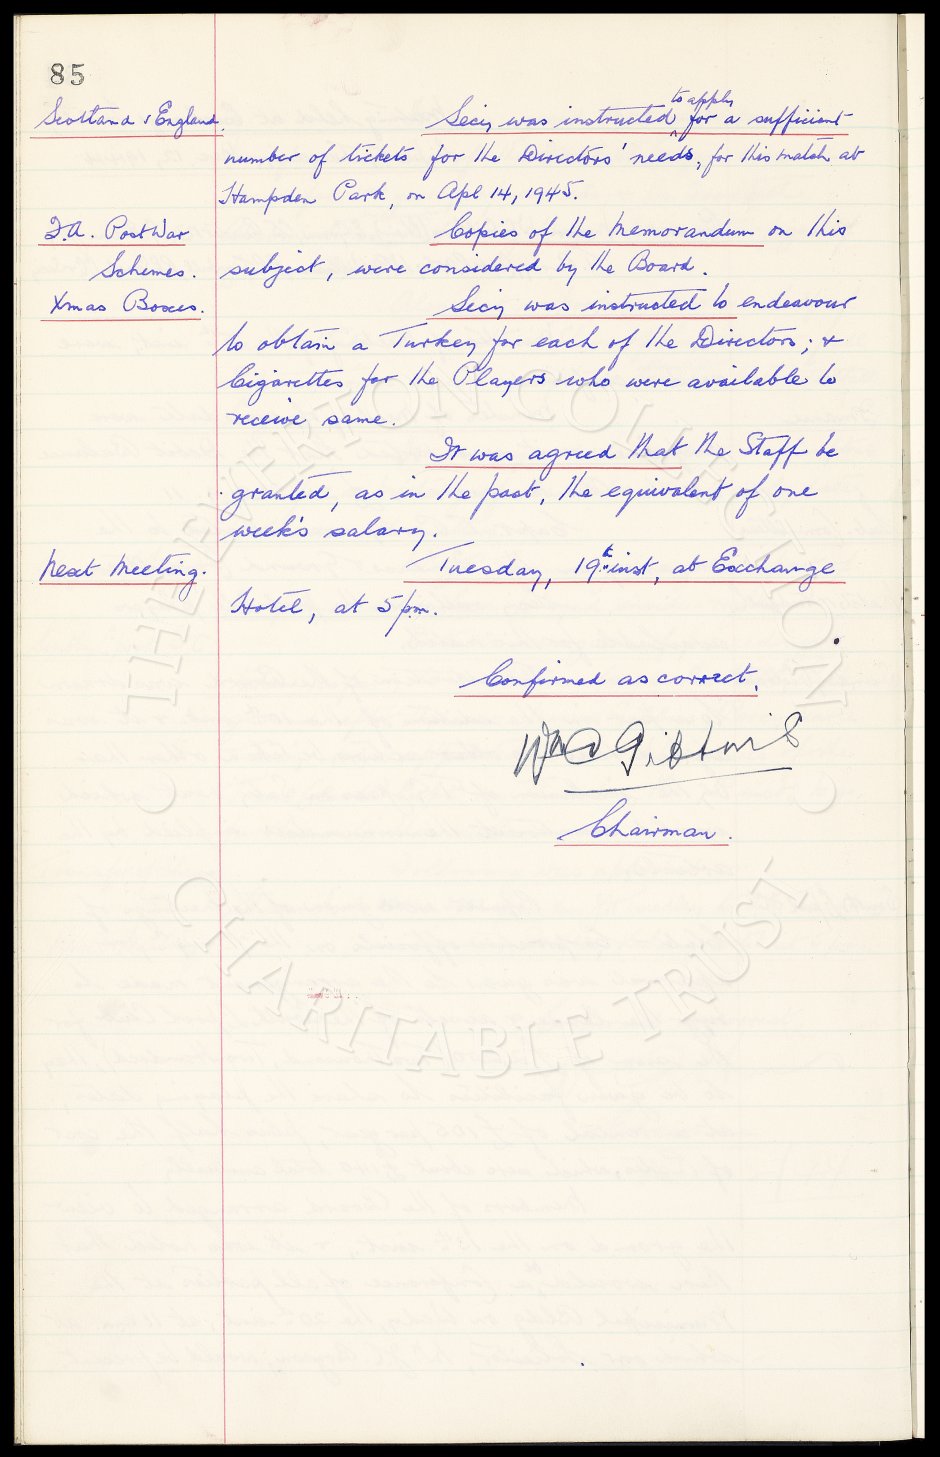 85
Scotland & England. Secy was instructed to apply for a sufficient
number of tickets for the Directors' needs, for this match at
Hampden Park, on Apl 14, 1945.
F.A. Post War Copies of the Memorandum on this
Schemes. subject, were considered by the Board.
Xmas Boxes. Secy was instructed to endeavour
to obtain a Turkey for each of the Directors; &
Cigarettes for the Players who were available to
receive same.
It was agreed that the Staff be
granted, as in the past, the equivalent of one
week's salary.
Next Meeting. Tuesday, 19th inst, at Exchange
Hotel, at 5 pm.
Confirmed as correct.
Wm C Gibbins
Chairman.
THE EVERTON COLLECTION
CHARITABLE TRUST